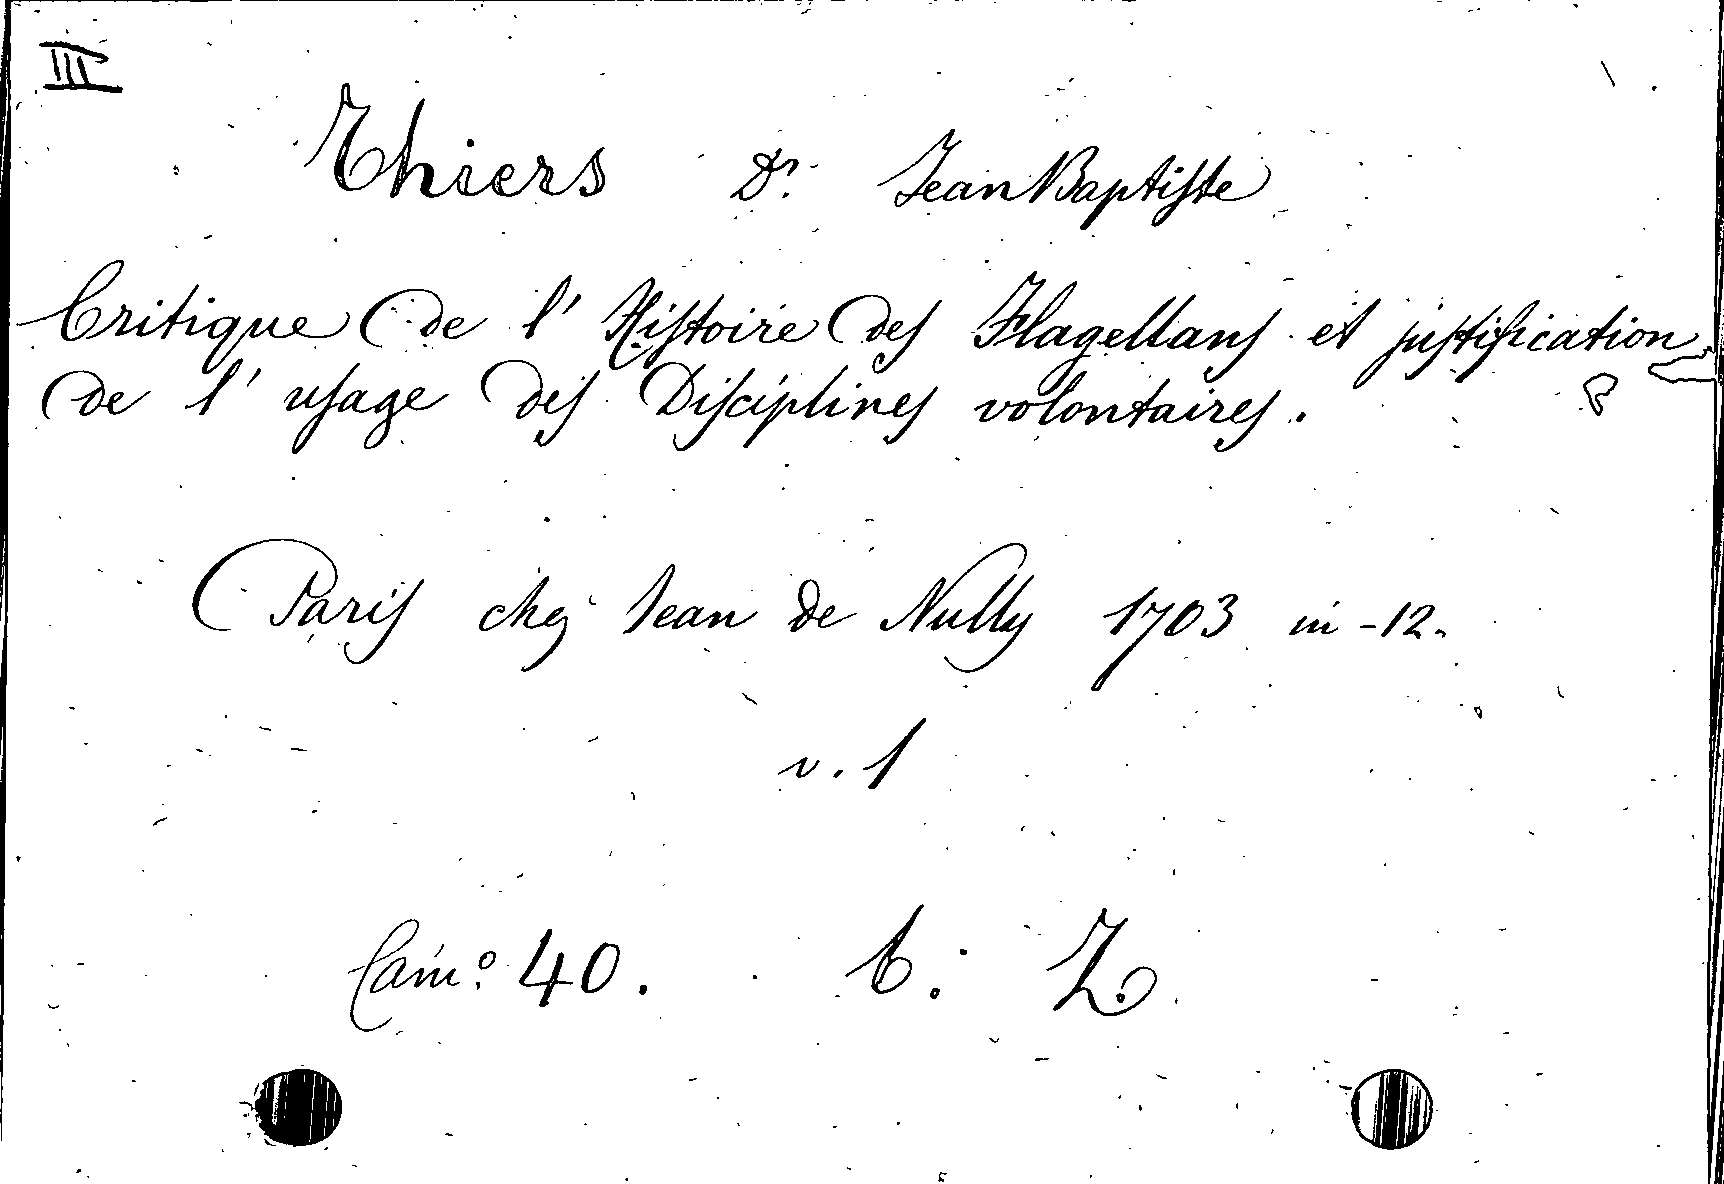 III
Thiers Dr. Jean Baptiste
Critique de l' Histoire des Flagellans et justification
de l' usage des Disciplines volontaires.
Paris chez Jean de Nully 1703 in-12.
v. 1
Cam.o 40. b. Z.